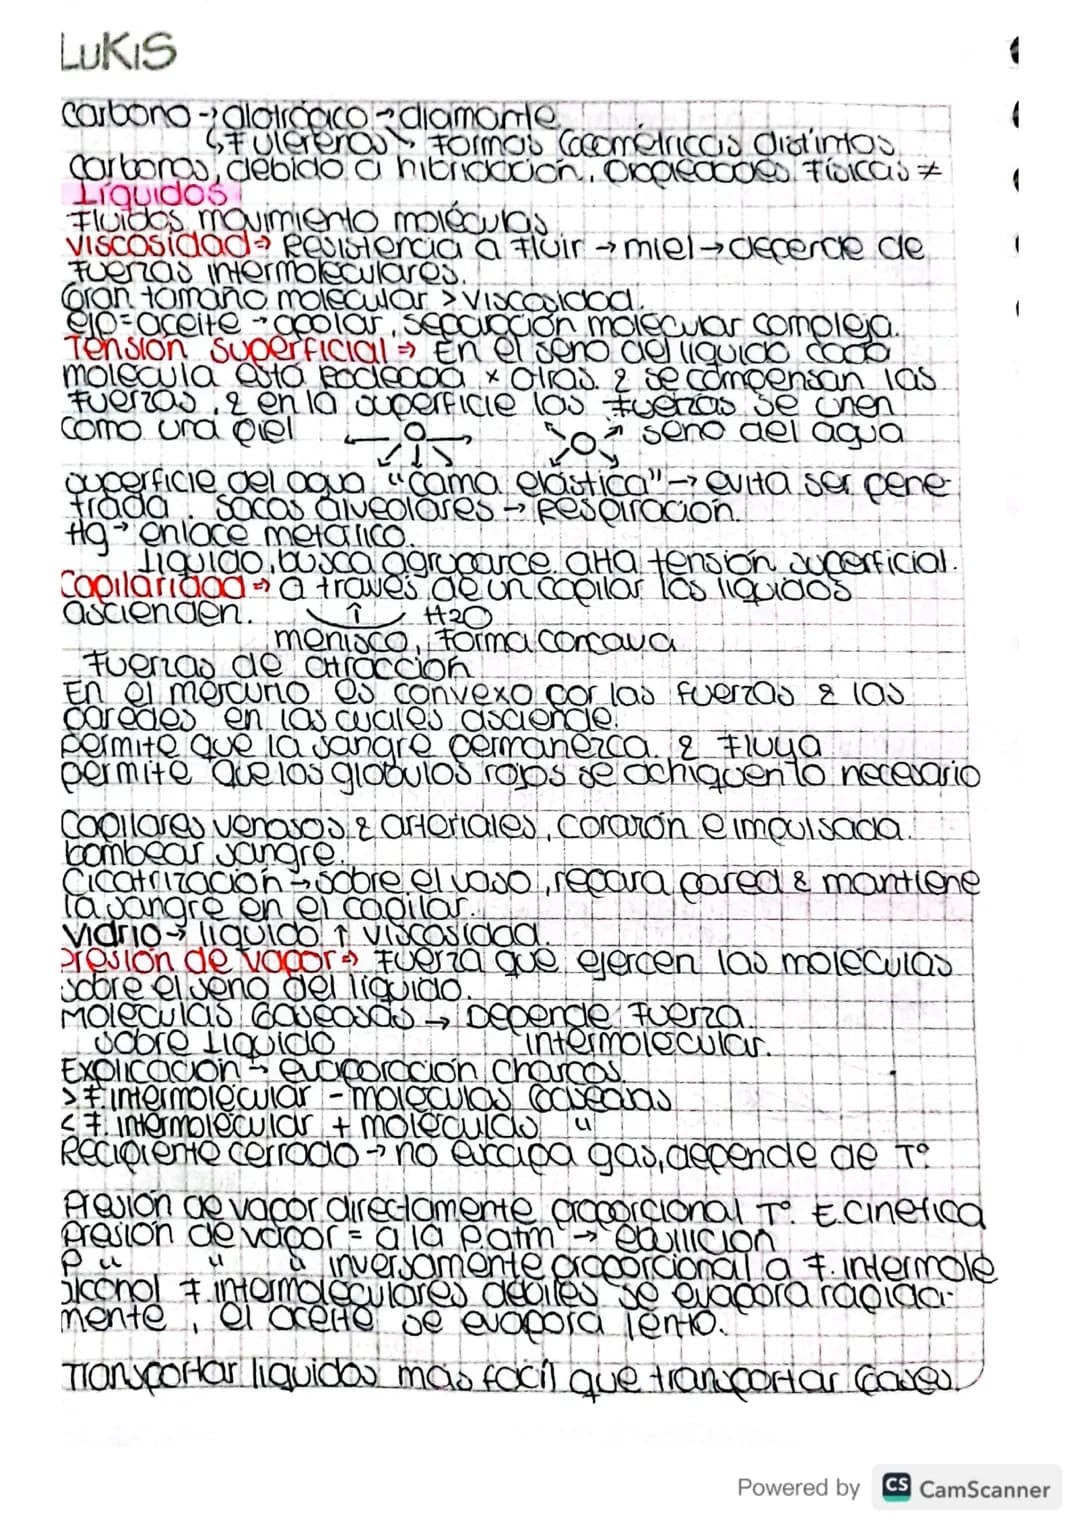 LUKIS
carbono → alotrópico → diamante
↳ Fulerenos ↘ Formas Geométricas distintas
carbonos, debido a hibridación, propiedades Físicas ≠
Líquidos
Fluidos movimiento moléculas
viscosidad ⇒ Resistencia a Fluir → miel → depende de
Fuerzas intermoleculares.
Gran tamaño molecular > viscosidad.
ejp = aceite → apolar, separación molecular compleja.
Tensión Superficial ⇒ En el seno del líquido cada
molécula está Rodeada x otras & se compensan las
Fuerzas, & en la superficie las Fuerzas se unen
como una piel seno del agua
superficie del agua "cama elástica" → evita ser pene-
trada. Sacos alveolares → Respiración.
Hg → enlace metálico.
líquido, busca agruparce. alta tensión superficial.
Capilaridad ⇒ a través de un capilar los líquidos
ascienden. ↑ H2O
menisco, Forma concava
Fuerzas de atracción
En el mercurio es convexo por las fuerzas & las
paredes en las cuales asciende.
permite que la sangre permanezca & Fluya
permite que los glóbulos rojos se achiquen lo necesario
Capilares venosos & arteriales, corazón e impulsada.
bombear sangre.
Cicatrización → sobre el vaso, repara pared & mantiene
la sangre en el capilar.
Vidrio → líquido ↑ viscosidad.
Presión de vapor ⇒ Fuerza que ejercen las moléculas
sobre el seno del líquido.
Moléculas Gaseosas → Depende Fuerza
sobre Líquido intermolecular.
Explicación → evaporación charcos.
> F. intermolecular - moléculas Gaseosas
< F. intermolecular + moléculas "
Recipiente cerrado → no escapa gas, depende de T°
Presión de vapor directamente proporcional T°. E. cinética
Presión de vapor = a la Patm → ebullición
P " " " inversamente proporcional a F. intermole
alcohol F. intermoleculares débiles se evapora rápida-
mente, el aceite se evapora lento.
Transportar líquidos más fácil que transportar Gases.
Powered by CS CamScanner